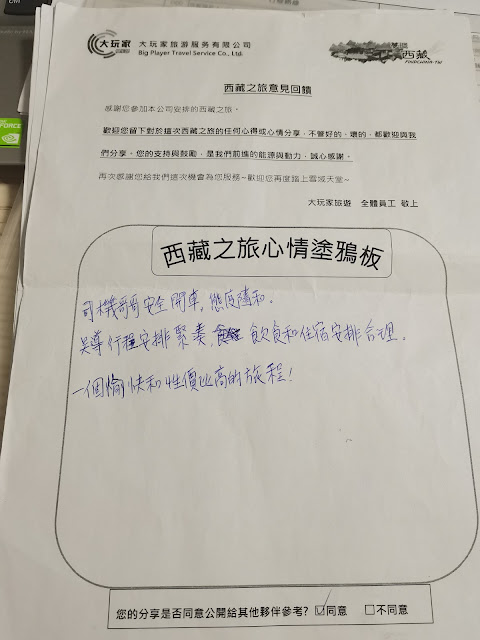 大玩家 大玩家旅游服务有限公司
Big Player Travel Service Co., Ltd.
西藏
西藏之旅意見回饋
感謝您參加本公司安排的西藏之旅，
歡迎您留下對於這次西藏之旅的任何心得或心情分享，不管好的、壞的，都歡迎與我
們分享。您的支持與鼓勵，是我們前進的能源與動力，誠心感謝。
再次感謝您給我們這次機會為您服務~歡迎您再度踏上雪域天堂~
大玩家旅遊 全體員工 敬上
西藏之旅心情塗鴉板
司機哥哥安全開車，態度隨和。
吳導行程安排緊湊，飲食和住宿安排合理。
一個愉快和性價比高的旅程！
您的分享是否同意公開給其他夥伴參考? ☑同意 □不同意